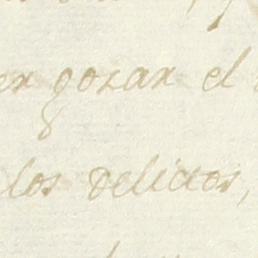 er gozar el
los delictos,